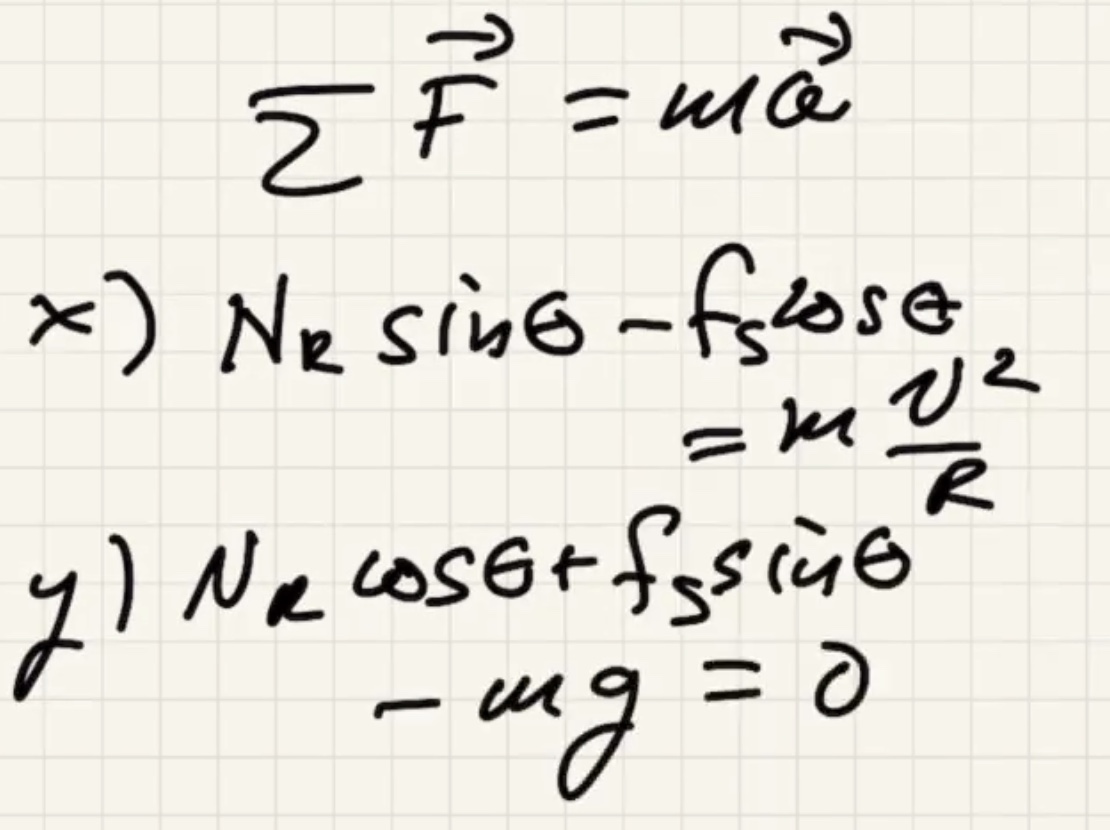 ∑ F⃗ = ma⃗
x) N_R sinθ - f_s cosθ
= m v²/R
y) N_R cosθ + f_s sinθ
- mg = 0